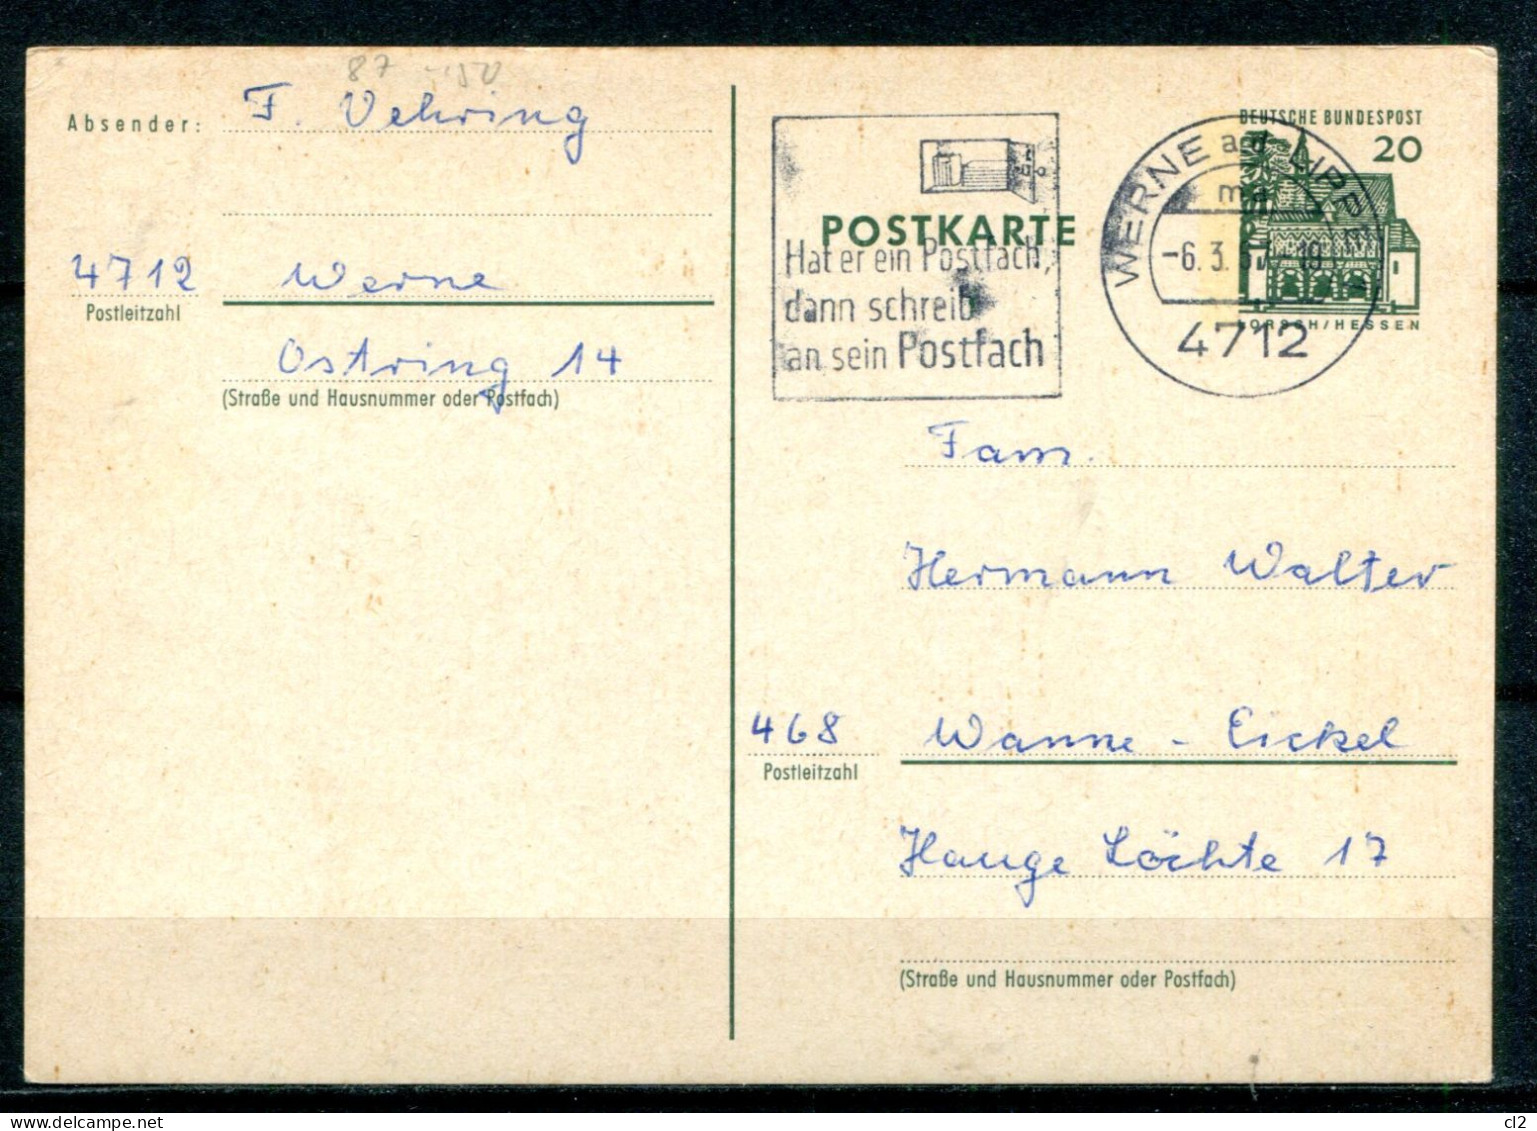 87 -,50
Absender: F. Vehring
4712 Werne
Postleitzahl
Ostring 14
(Straße und Hausnummer oder Postfach)
POSTKARTE
Hat er ein Postfach,
dann schreib
an sein Postfach
WERNE a.d. LIPPE
ma
-6. 3. 67 - 19
4712
DEUTSCHE BUNDESPOST
20
LORSCH/HESSEN
Fam.
Hermann Walter
468 Wanne-Eickel
Postleitzahl
Hauge Löchte 17
(Straße und Hausnummer oder Postfach)
delcampe.net
cl2